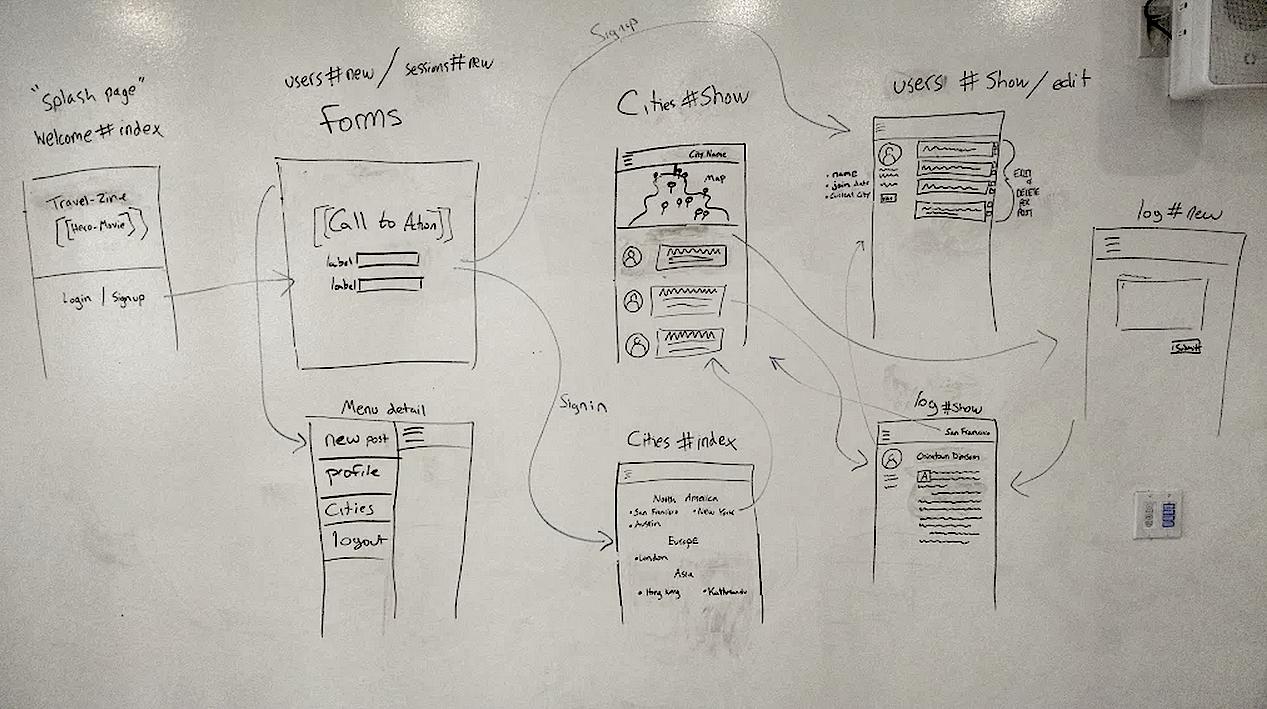 "Splash page"
Welcome#index
Travel-Zine
[[Hero-Movie]]
Login / Signup
users#new / sessions#new
Forms
[[Call to Action]]
label
label
Menu detail
new post
profile
Cities
logout
Signup
Signin
Cities #Show
City Name
Map
Cities #index
North America
•San Francisco •New York
•Austin
Europe
•London
Asia
•Hong Kong •Kathmandu
users #Show/edit
• name
• join date
• Current City
EDIT
or
DELETE
PER
POST
log#show
San Francisco
Chinatown
A
log#new
Submit